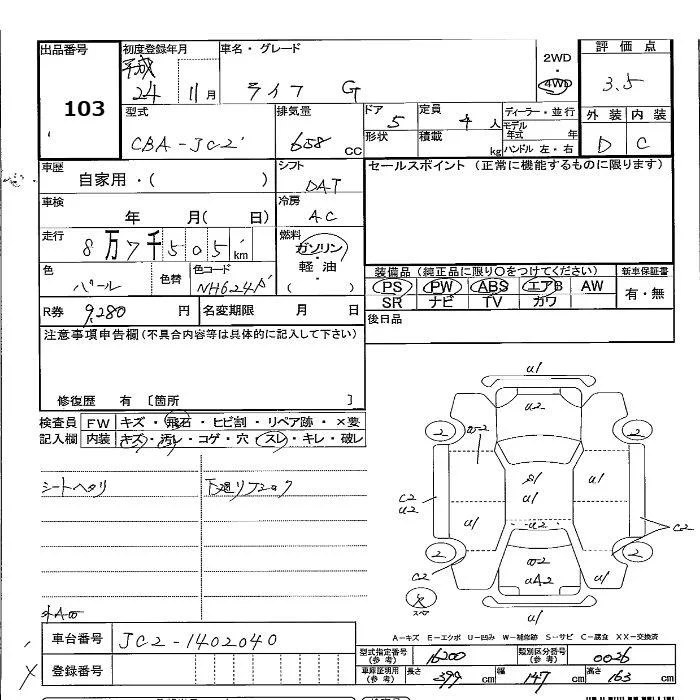 出品番号
103
初度登録年月
平成
24 11月
車名・グレード
ライフ G
2WD
4WD
評価点
3.5
外装 内装
D C
型式
CBA-JC2
排気量
658 CC
ドア 5
定員 4 人
形状
積載 kg
ディーラー・並行
モデル年式 年
ハンドル 左・右
車歴
自家用・( )
シフト
DAT
セールスポイント (正常に機能するものに限ります)
車検
年 月( 日)
冷房
AC
走行
8万7千505km
燃料
ガソリン・
軽・油・
( )
色
パール
色替
色コード
NH624P
装備品(純正品に限り○をつけてください)
PS PW ABS エアB AW
SR ナビ TV カワ
新車保証書
有・無
R券 9,280 円
名変期限 月 日
後日品
注意事項申告欄(不具合内容等は具体的に記入して下さい)
修復歴 有 〔箇所 〕
検査員
記入欄
FW キズ・飛石・ヒビ割・リペア跡・×要
内装 キズ・汚レ・コゲ・穴・スレ・キレ・破レ
シートヘタリ
下廻りフロック
外A
U1
U2
2
W2
2
S1
U1
U1
C2
U2
U1
U2
U1
C2
2
C2
W2
UA2
U1
2
スペア
U1
車台番号 JC2-1402040
登録番号
A-キズ E-エクボ U-凹み W-補修跡 S-サビ C-腐食 XX-交換済
型式指定番号(参考) 16200
類別区分番号(参考) 0026
車庫証明用(参考) 長さ 399 cm 幅 147 cm 高さ 163 cm